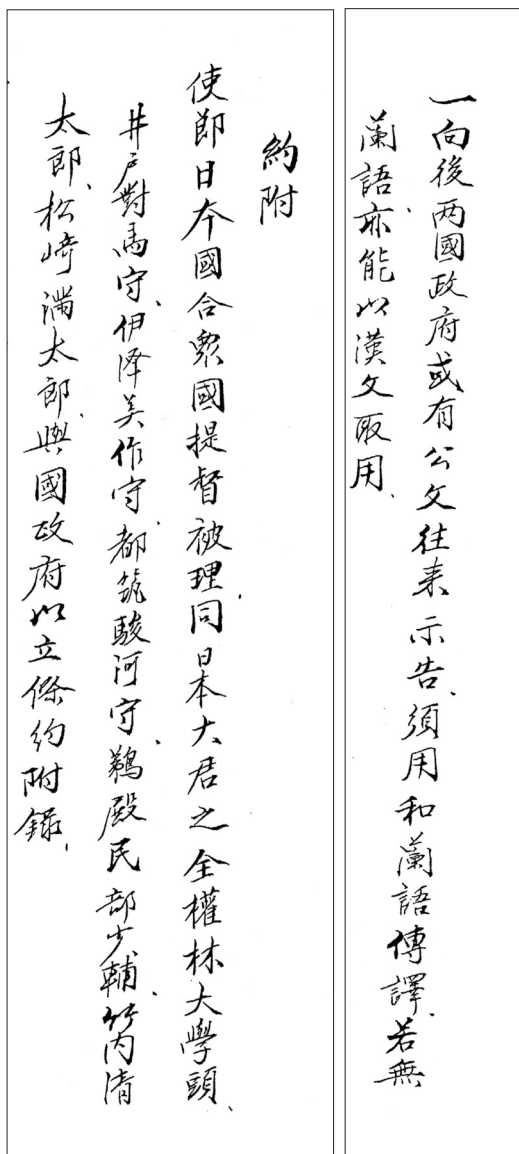 一向後两國政府或有公文往来示告、須用和蘭語傳譯、若無
蘭語亦能以漢文取用、
約附
使即日本國合衆國提督被理、同日本大君之全權林大學頭、
井戸對馬守、伊澤美作守、都筑駿河守、鵜殿民部少輔、竹内清
太郎、松﨑満太郎、與國政府以立條約附錄、